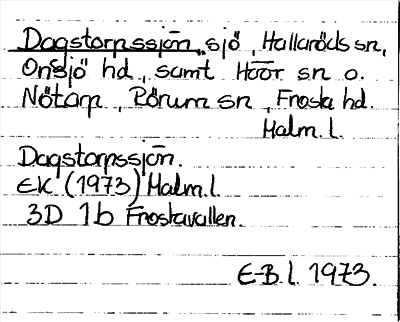 Dagstorpssjön, sjö, Hallaröds sn,
Onsjö hd, samt Höör sn o.
Nötarp, Rörum sn, Frosta hd.
Malm. l.
Dagstorpssjön.
EK (1973) Malm. l.
3D 1b Frostavallen.
E-B. l. 1973.